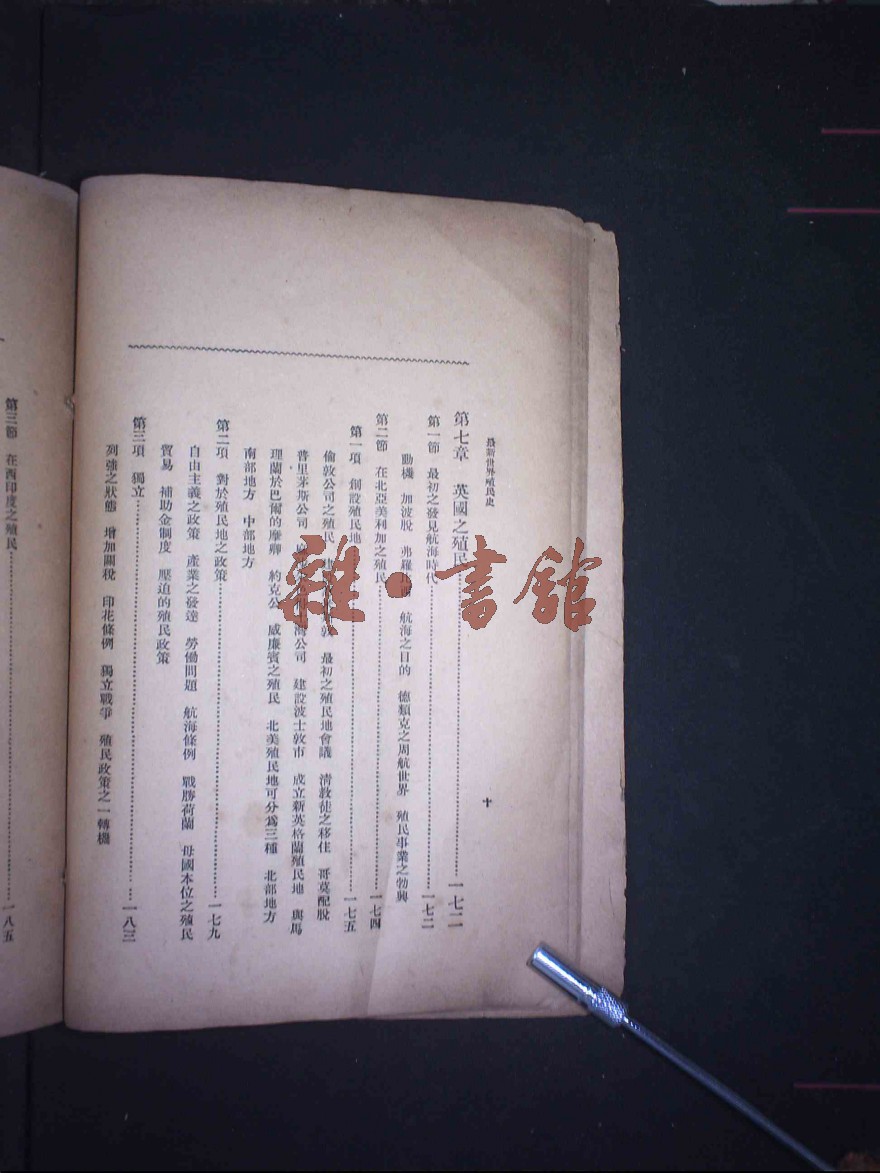 最新世界殖民史
十
第七章 英國之殖民……一七二
第一節 最初之發見航海時代……一七二
動機 加波脫 弗羅 航海之目的 德類克之周航世界 殖民事業之勃興
第二節 在北亞美利加之殖民……一七四
第一項 創設殖民地……一七五
倫敦公司之殖民 建 敦 最初之殖民地會議 清教徒之移住 哥莫配脫
普里茅斯公司 灣公司 建設波士敦市 成立新英格蘭殖民地 與馬
理蘭於巴爾的摩卿 約克公 威廉賓之殖民 北美殖民地可分爲三種 北部地方
南部地方 中部地方
第二項 對於殖民地之政策……一七九
自由主義之政策 產業之發達 勞働問題 航海條例 戰勝荷蘭 母國本位之殖民
貿易 補助金制度 壓迫的殖民政策
第三項 獨立……一八三
列強之狀態 增加關稅 印花條例 獨立戰爭 殖民政策之一轉機
第三節 在西印度之殖民……一八五
雜·書館